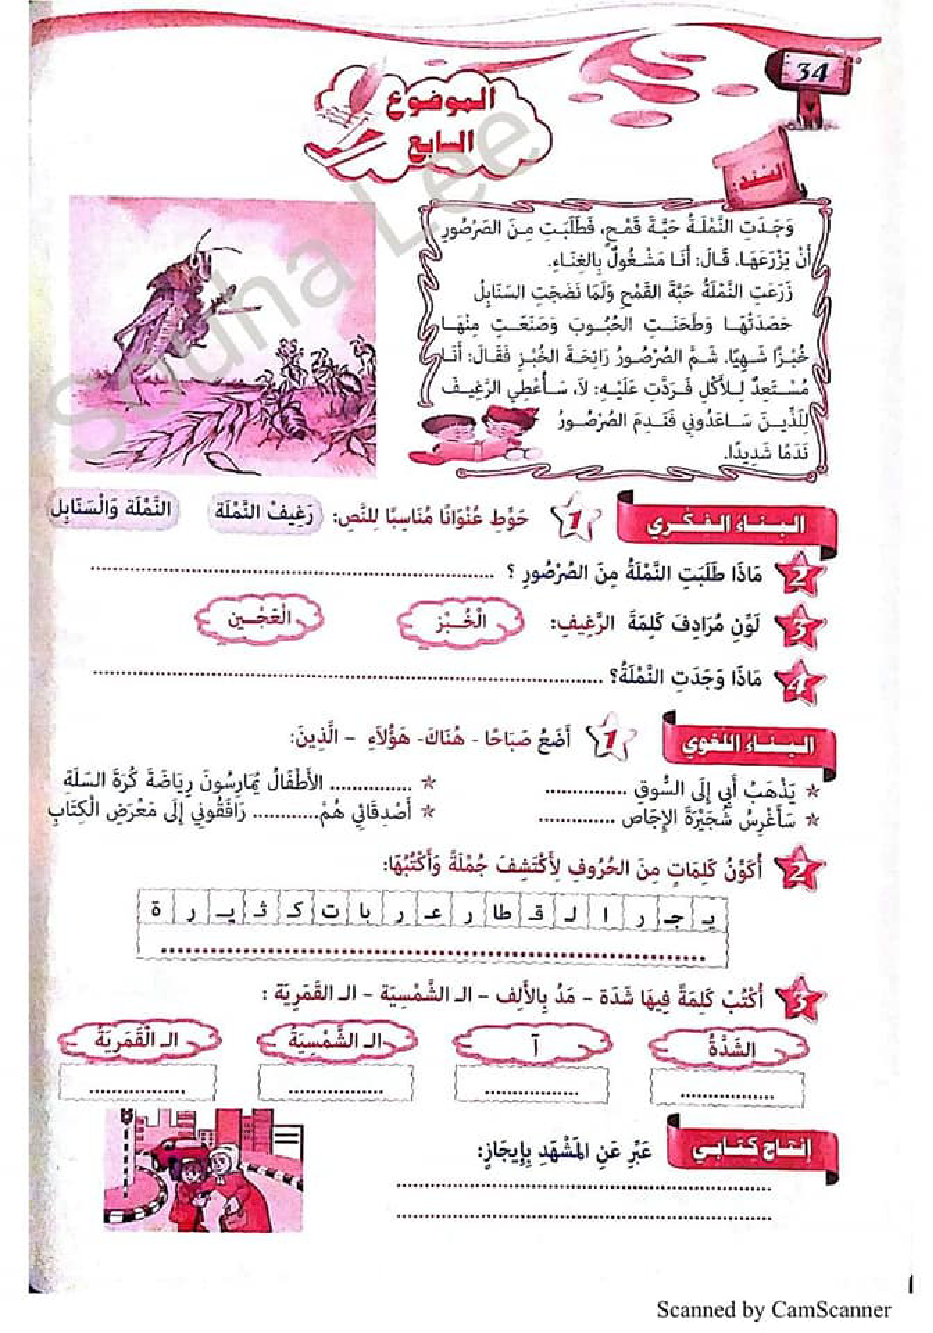 34
الموضوع
السابع
السند:
وَجَدَتِ النَّمْلَةُ حَبَّةَ قَمْحٍ، فَطَلَبَتِ مِنَ الصَرْصُورِ
أَنْ يَزْرَعَهَا. قَالَ: أَنَا مَشْغُولٌ بِالغِنَاءِ.
زَرَعَتِ النَّمْلَةُ حَبَّةَ القَمْحِ وَلَمَا نَضَجَتِ السَنَابِلُ
حَصَدَتْهَا وَطَحَنَتِ الحُبُوبَ وَصَنَعَتْ مِنْهَا
خُبْزًا شَهِيًا. شَمَّ الصُرْصُورُ رَائِحَةَ الخُبْزِ فَقَالَ: أَنَا
مُسْتَعِدٌ لِلأَكْلِ فَرَدَّتِ عَلَيْهِ: لاَ، سَأُعْطِي الرَّغِيفَ
لِلَّذِينَ سَاعَدُونِي فَنَدِمَ الصُرْصُورُ
نَدَمًا شَدِيدًا.
البناء الفكري
1 حَوِّطِ عُنْوَانًا مُنَاسِبًا لِلنَّصِ: رَغِيفُ النَّمْلَة النَّمْلَة وَالْسَنَابِل
2 مَاذَا طَلَبَتِ النَّمْلَةُ مِنَ الصُرْصُورِ ؟ ..........
3 لَوِّنِ مُرَادِفَ كَلِمَةَ الرَّغِيفِ: الْخُبْز الْعَجْين
4 مَاذَا وَجَدَتِ النَّمْلَةُ؟ ..........
البناء اللغوي
1 أَضَعُ صَبَاحًا - هُنَاكَ- هَؤُلاَءِ – الَّذِينَ:
* يَذْهَبُ أَبِي إِلَى السُّوقِ .......... * .......... الأَطْفَالُ يُمَارِسُونَ رِيَاضَةَ كُرَةَ السَلَةِ
* سَأَغْرِسُ شُجَيْرَةَ الإِجَاصِ .......... * أَصْدِقَائِي هُمْ.......... رَافَقُونِي إِلَى مَعْرَضِ الْكِتَابِ
2 أُكَوِّنُ كَلِمَاتٍ مِنَ الحُرُوفِ لِأَكْتَشِفَ جُمْلَةً وَأَكْتُبُهَا:
يـ جـ ر ا لـ قـ طا ر عـ ر با ت كـ ثـ يـ ر ة
3 أُكْتُبْ كَلِمَةً فِيهَا شَدَة – مَدُ بِالأَلِف – الـ الشَّمْسِيَة – الـ القَمَرِيَة :
الشَدَّةُ آ الـ الشَّمْسِيَةُ الـ الْقَمَرِيَةُ
إنتاج كتابي
عَبِّرِ عَنِ المَشْهَدِ بِإِيجَازٍ:
Souha Lee
Scanned by CamScanner